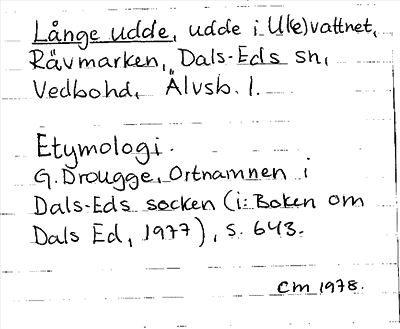 Långe udde, udde i Ul(e)vattnet,
Rävmarken, Dals-Eds sn,
Vedbohd, Älvsb. l.
Etymologi.
G. Drougge, Ortnamnen i
Dals-Eds socken (i: Boken om
Dals Ed, 1977), s. 643.
CM 1978.